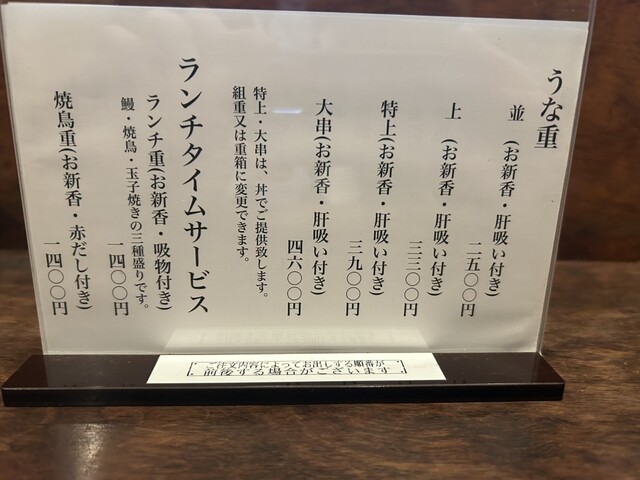 うな重
並 (お新香・肝吸い付き)
二五〇〇円
上 (お新香・肝吸い付き)
三三〇〇円
特上(お新香・肝吸い付き)
三九〇〇円
大串(お新香・肝吸い付き)
四六〇〇円
特上・大串は、丼でご提供致します。
組重又は重箱に変更できます。
ランチタイムサービス
ランチ重(お新香・吸物付き)
鰻・焼鳥・玉子焼きの三種盛りです。
一四〇〇円
焼鳥重(お新香・赤だし付き)
一四〇〇円
ご注文内容によってお出しする順番が
前後する場合がございます